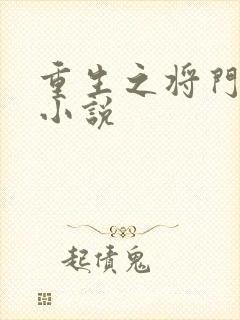 重生之将門
小説
起債鬼